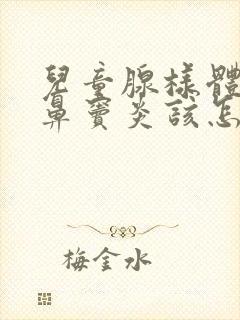 兒童腺樣體
鼻竇炎該怎
梅金水